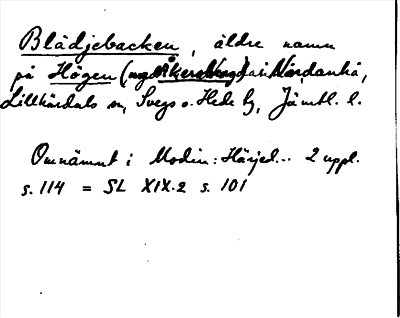 Blädjebacken, äldre namn
på Högen (ngd Åkerskog) i Nordanhå,
Lillhärdals sn, Svegs o. Hede tg, Jämtl. l.
Omnämnt i Modin: Härjed... 2 uppl.
s. 114 = SL XIX.2 s. 101